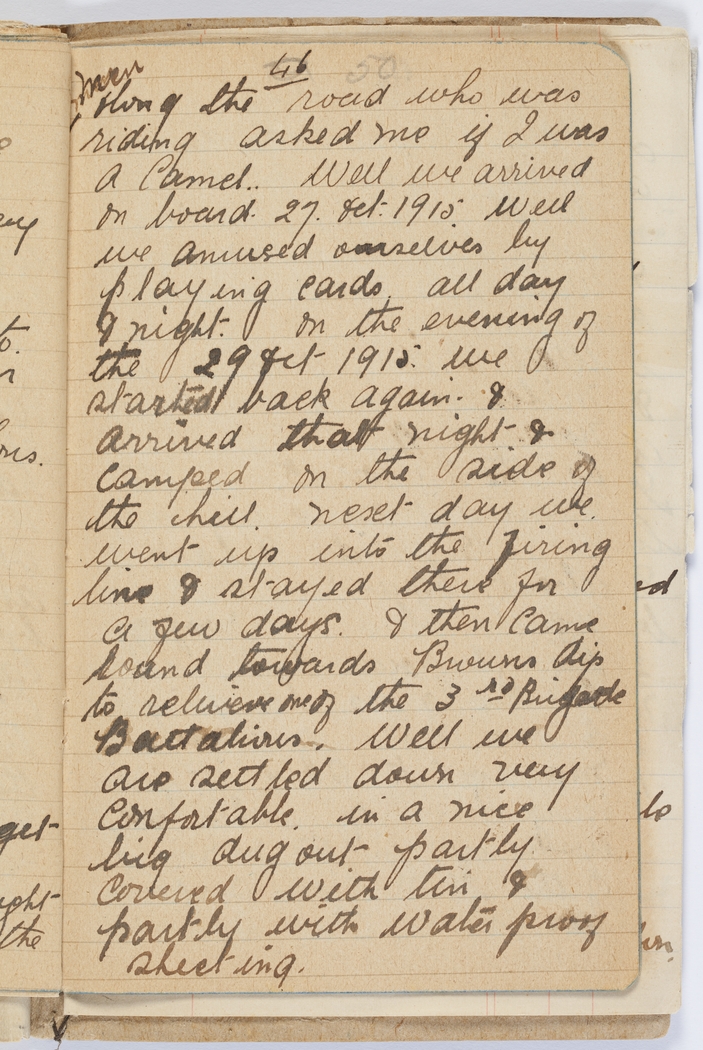 46 50
men
along the road who was
riding asked me if I was
a Camel.. Well we arrived
on board. 27. Oct. 1915 Well
we amused ourselves by
playing cards all day
& night. On the evening of
the 29 Oct 1915. we
started back again. &
arrived that night &
camped on the side of
the hill. next day we
went up into the firing
line & stayed there for
a few days. & then came
round towards Browns dip
to relieve one of the 3rd Brigade
Battalions. Well we
are settled down very
confortable. in a nice
big dug out partly
covered with tin &
partly with water proof
sheeting.